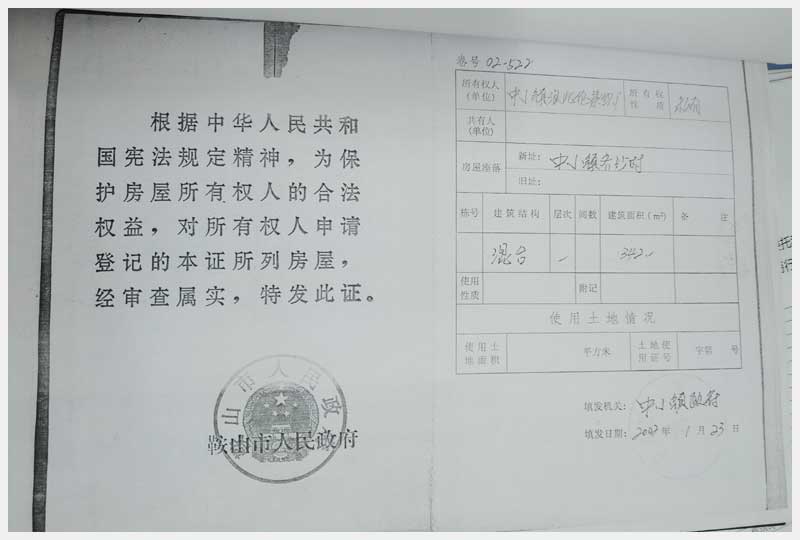 根据中华人民共和
国宪法规定精神，为保
护房屋所有权人的合法
权益，对所有权人申请
登记的本证所列房屋，
经审查属实，特发此证。
鞍山市人民政府
卷号 02-522
所有权人
(单位)
所有权
性质
私有
共有人
(单位)
房屋座落
新址：
旧址：
栋号 建筑结构 层次 间数 建筑面积(m²) 备注
混合 一 342
使用
性质
附记
使用土地情况
使用土
地面积
平方米
土地使
用证号
字第 号
填发机关：中小镇政府
填发日期： 年 1 月 23 日